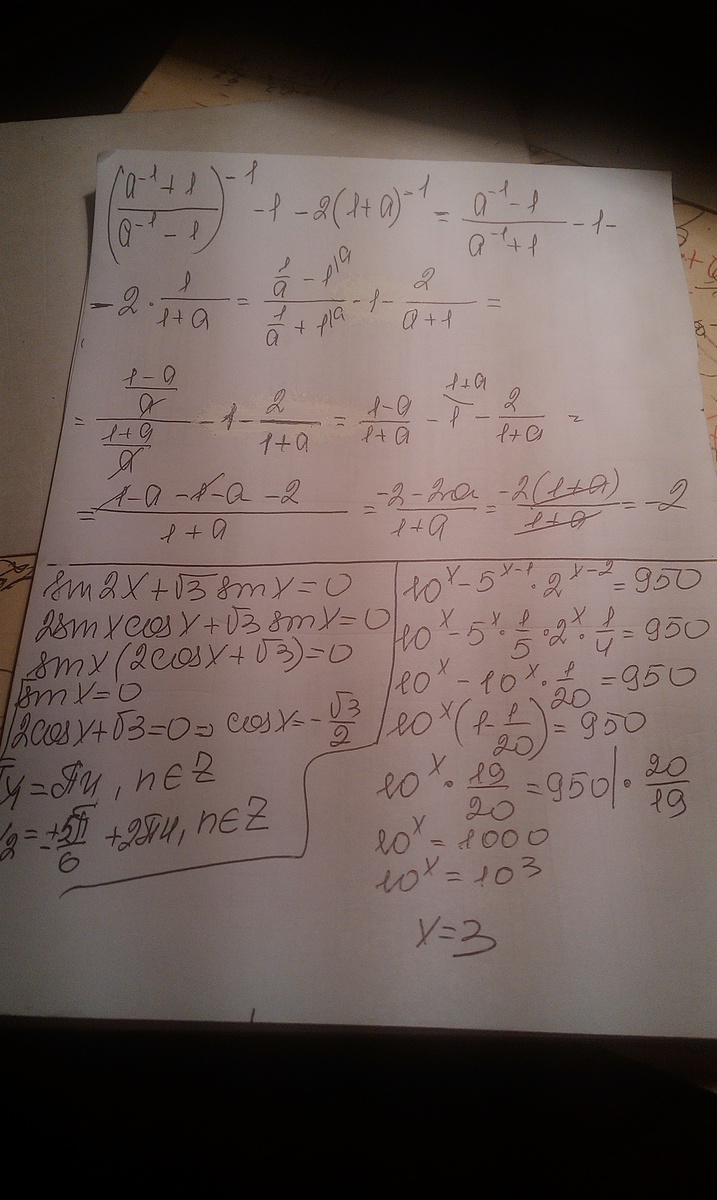 ((a⁻¹+1)/(a⁻¹-1))⁻¹ -1 -2(1+a)⁻¹ = (a⁻¹-1)/(a⁻¹+1) -1-
-2·1/(1+a) = (1/a - 1\a)/(1/a + 1\a) -1- 2/(a+1) =
= ((1-a)/a)/((1+a)/a) -1- 2/(1+a) = (1-a)/(1+a) - 1\1+a - 2/(1+a) =
= (1-a-1-a-2)/(1+a) = (-2-2a)/(1+a) = -2(1+a)/(1+a) = -2
sin2x+√3 sinx=0
2sinxcosx+√3 sinx=0
sinx(2cosx+√3)=0
sinx=0
2cosx+√3=0 ⇒ cosx=-√3/2
=πn, n∈Z
2=±5π/6 +2πn, n∈Z
10ˣ-5ˣ⁻¹·2ˣ⁻²=950
10ˣ-5ˣ·1/5·2ˣ·1/4=950
10ˣ-10ˣ·1/20=950
10ˣ(1-1/20)=950
10ˣ·19/20=950|·20/19
10ˣ=1000
10ˣ=10³
x=3